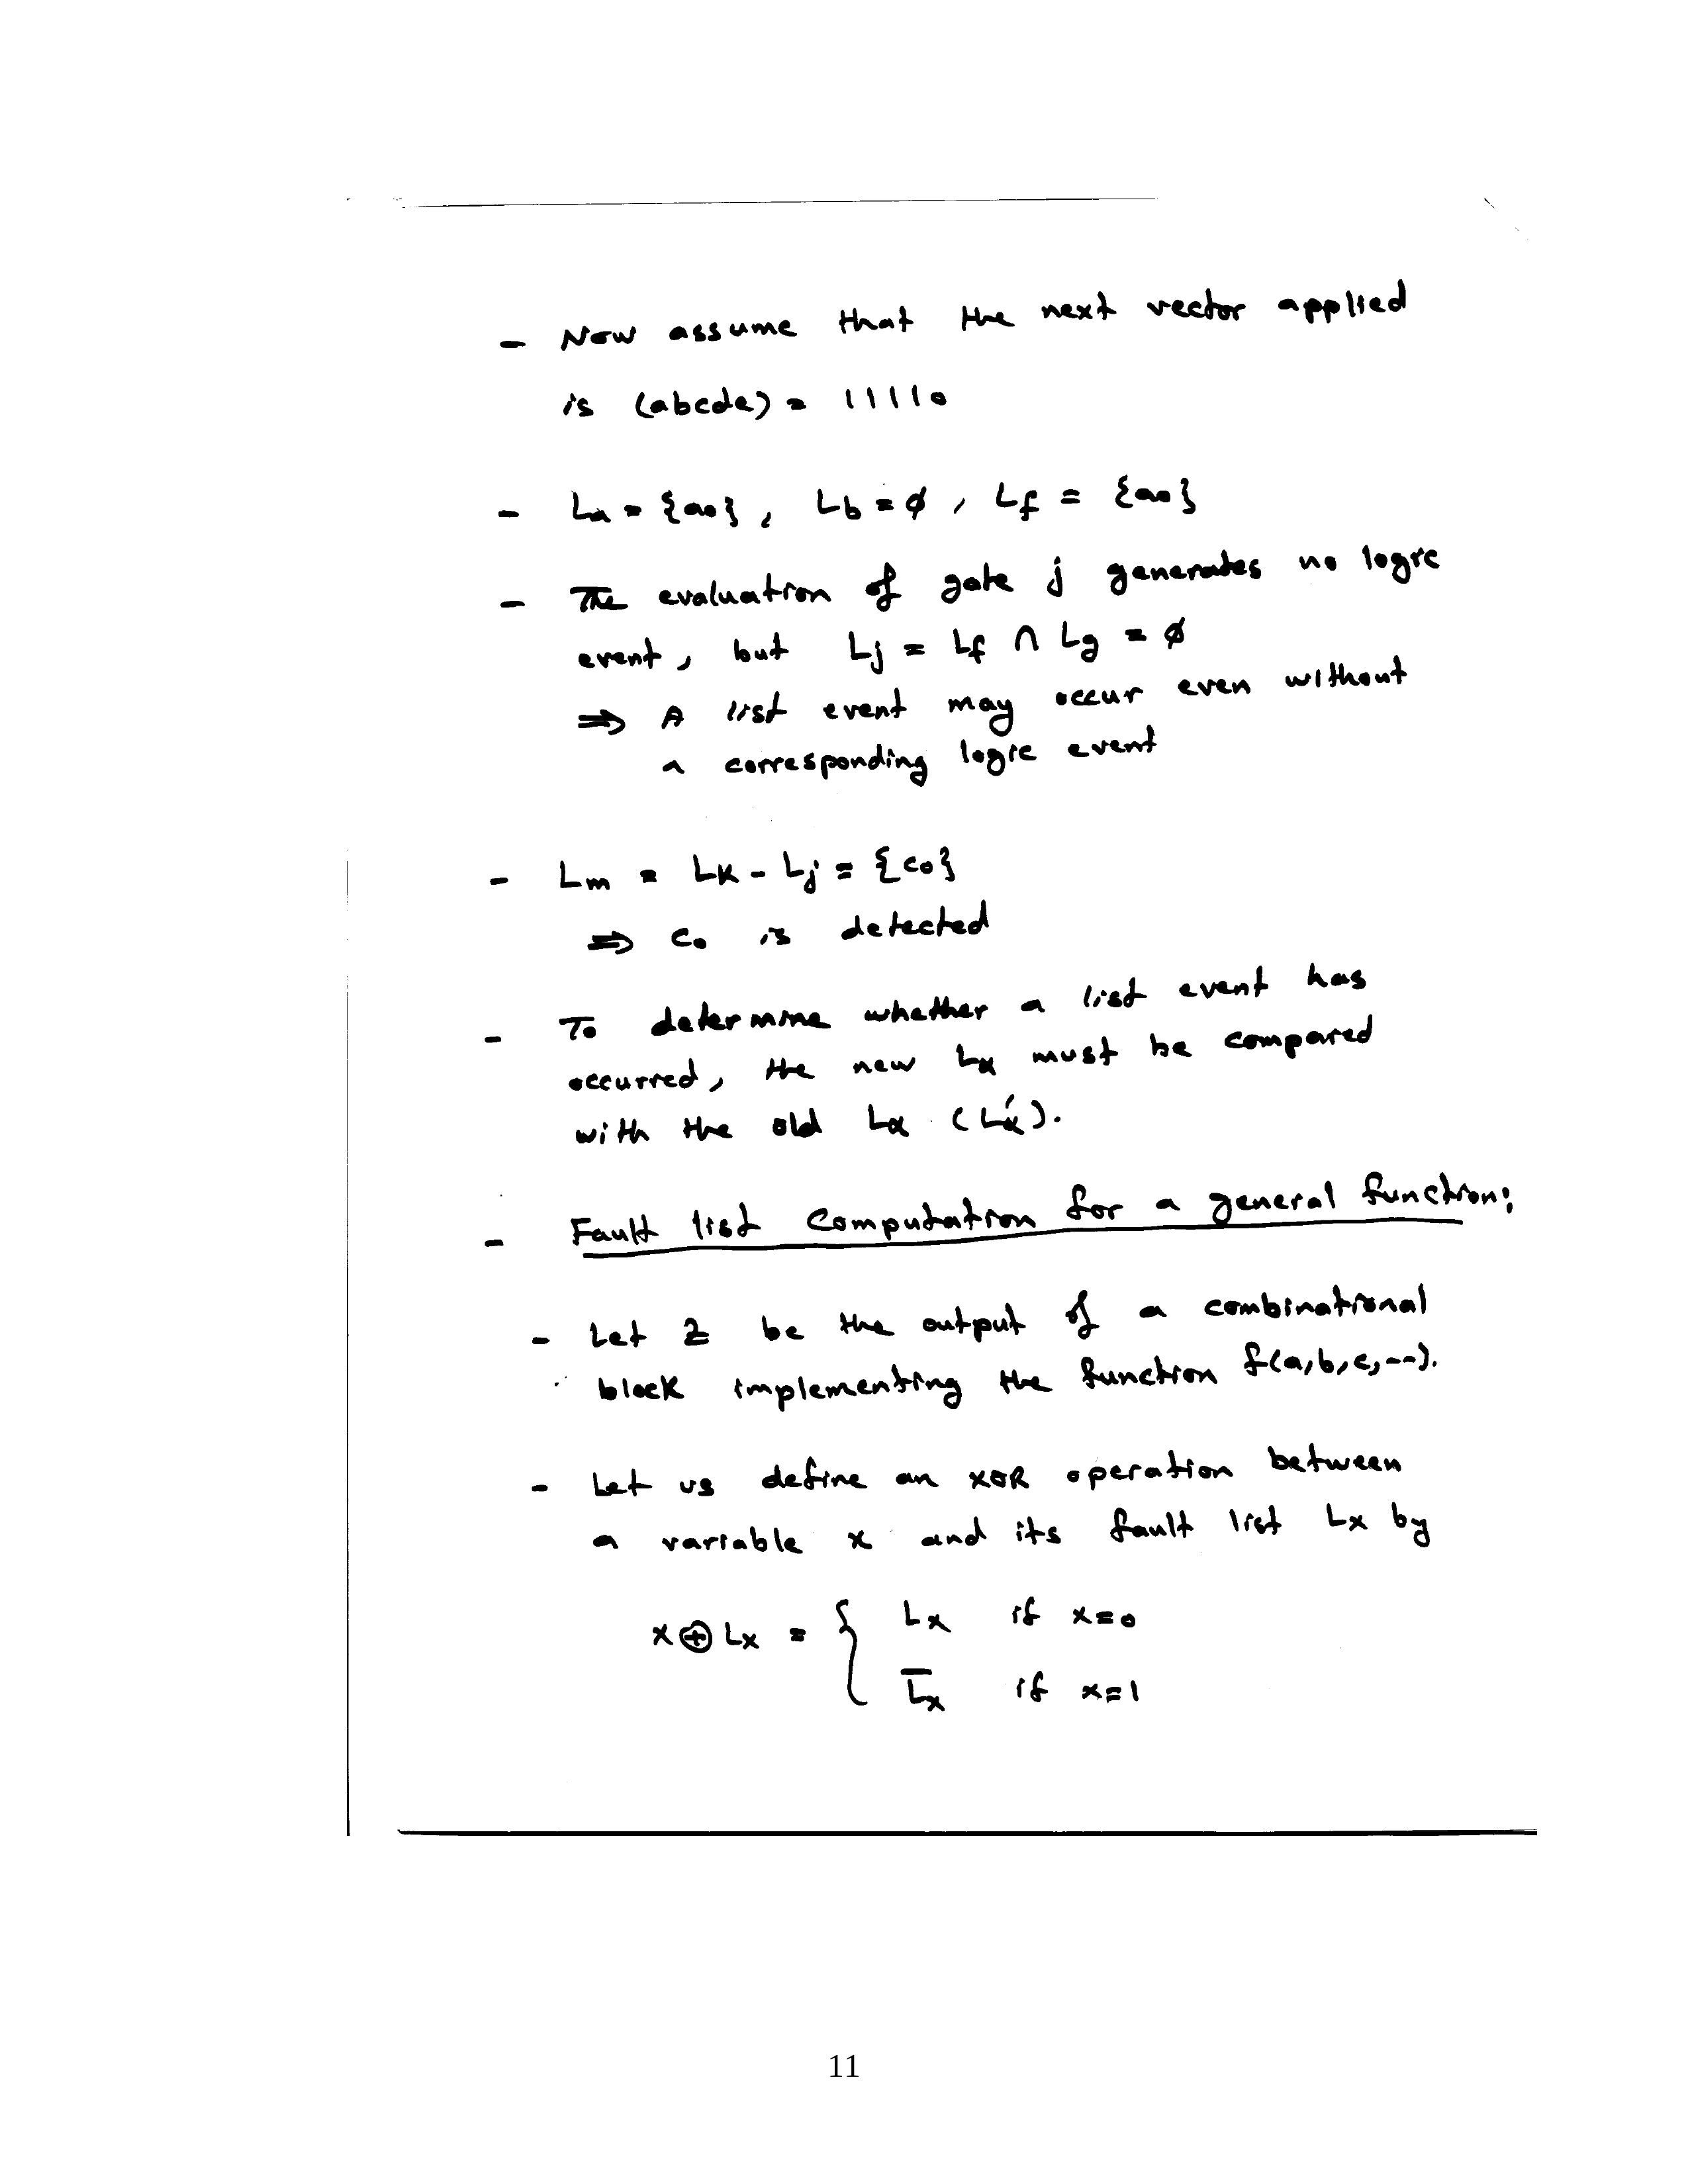 - Now assume that the next vector applied
is (abcde) = 11110
- La = {a0}, Lb = ∅, Lf = {a0}
- The evaluation of gate j generates no logic
event, but Lj = Lf ∩ Lg = ∅
⇒ A list event may occur even without
a corresponding logic event
- Lm = Lk - Lj = {c0}
⇒ c0 is detected
- To determine whether a list event has
occurred, the new Lα must be compared
with the old Lα (L'α).
- Fault list Computation for a general function:
- Let Z be the output of a combinational
block implementing the function f(a,b,c,--).
- Let us define an XOR operation between
a variable x and its fault list Lx by
x ⊕ Lx = { Lx if x=0
L̅x if x=1
11